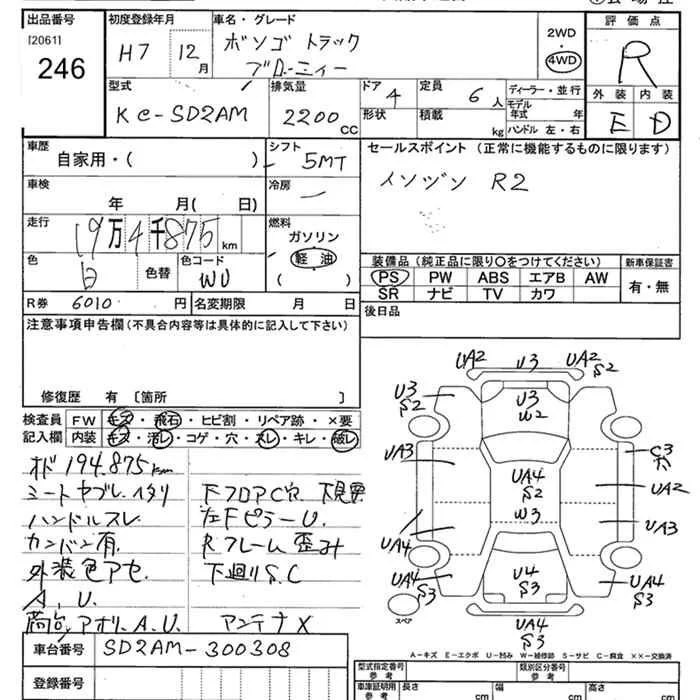 出品番号 初度登録年月 車名・グレード 評価点
[2061]
246
H7 12月
ボンゴ トラック
ブローニィー
2WD
4WD
R
型式 排気量 ドア 定員 ディーラー・並行 外装 内装
KC-SD2AM 2200CC 4 6人
形状 積載 kg モデル年式 年
ハンドル 左・右
E D
車歴 自家用・( ) シフト 5MT
セールスポイント (正常に機能するものに限ります)
R2
車検 年 月( 日) 冷房 ー
走行 19万4千875km
燃料 ガソリン
軽油
( )
色 白 色替 色コード WU
装備品 (純正品に限り○をつけてください) 新車保証書
PS PW ABS エアB AW 有・無
SR ナビ TV カワ
R券 6010円 名変期限 月 日
後日品
注意事項申告欄(不具合内容等は具体的に記入して下さい)
修復歴 有 〔箇所 〕
検査員 FW キズ・飛石・ヒビ割・リペア跡・×要
記入欄 内装 キズ・汚レ・コゲ・穴・スレ・キレ・破レ
オド 194.875km
シートヤブレ.イタリ 下フロアC穴 下見要
ハンドルスレ 左FピラーU.
カンバン有. Rフレーム歪み
外装色アセ. 下廻りS.C
A.U.
荷台.アオリ.A.U. アンテナX
車台番号 SD2AM-300308
登録番号
UA2 U3 UA2
S2
U3
S2
U3
W2
U3
S2
UA3
C3
UA4
S2
UA2
W3
UA3
UA4
UA4
S3
U4
S3
UA4
S3
スペア
UA4
S3
A-キズ E-エクボ U-凹み W-補修跡 S-サビ C-腐食 ××-交換済
型式指定番号 参考 類別区分番号 参考
車庫証明用 参考 長さ cm 幅 cm 高さ cm